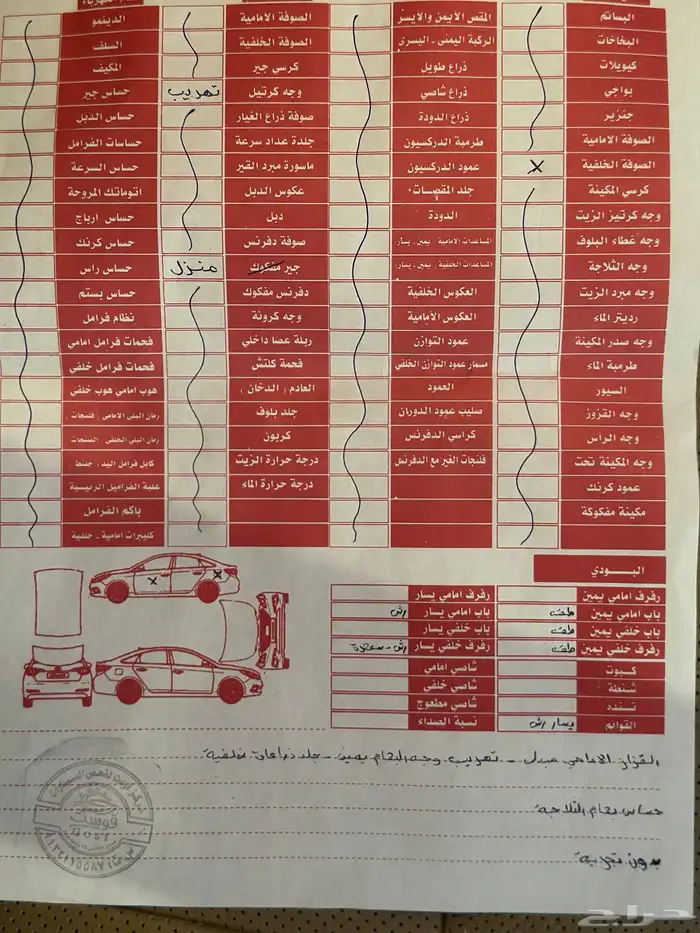 البساتم المقص الايمن والايسر الصوفة الامامية الدينمو
البخاخات الركبة اليمنى - اليسرى الصوفة الخلفية السلف
كيويلات ذراع طويل كرسي جير المكيف
بواجي ذراع شاصي وجه كرتيل تهريب حساس جير
جنزير ذراع الدودة صوفة ذراع الغيار حساس الدبل
الصوفة الامامية طرمبة الدركسيون جلدة عداد سرعة حساسات الفرامل
الصوفة الخلفية X عمود الدركسيون ماسورة مبرد القير حساس السرعة
كرسي المكينة جلد المقصات عكوس الدبل اتوماتك المروحة
وجه كرتيز الزيت الدودة دبل حساس ارباح
وجه غطاء البلوف المساعدات الامامية يمين - يسار صوفة دفرنس حساس كرنك
وجه الثلاجة المساعدات الخلفية يمين - يسار جير مفكوك منزل حساس راس
وجه مبرد الزيت العكوس الخلفية دفرنس مفكوك حساس بستم
رديتر الماء العكوس الأمامية وجه كرونة نظام فرامل
وجه صدر المكينة عمود التوازن ريلة عصا داخلي فحمات فرامل امامي
طرمبة الماء مسمار عمود التوازن الخلفي فحمة كلتش فحمات فرامل خلفي
السيور العمود العادم ( الدخان ) هوب امامي هوب خلفي
وجه القزوز صليب عمود الدوران جلد بلوف رمان البلي الامامي ( فلنجات )
وجه الراس كراسي الدفرنس كربون رمان البلي الخلفي الفلنجات
وجه المكينة تحت فلنجات الغير مع الدفرنش درجة حرارة الزيت كابل فرامل اليد ( جلنط )
عمود كرنك درجة حرارة الماء علبة الفراميل الرئيسية
مكينة مفكوكة باكم الفرامل
كليبرات امامية - خلفية
البودي
رفرف امامي يمين رفرف امامي يسار
باب امامي يمين طف باب امامي يسار رش
باب خلفي يمين طف باب خلفي يسار
رفرف خلفي يمين طف رفرف خلفي يسار رش -
كبوت شاصي امامي
شنطة شاصي خلفي
تندد شاصي مطعوج
القوائم يسار رش نسبة الصداء
القزاز الامامي مبدل - تهريب وجه البلف يمين - جلد ذراعات خلفية
حساس بلف الثلاجة
بدون تجربة
قوست
حراج